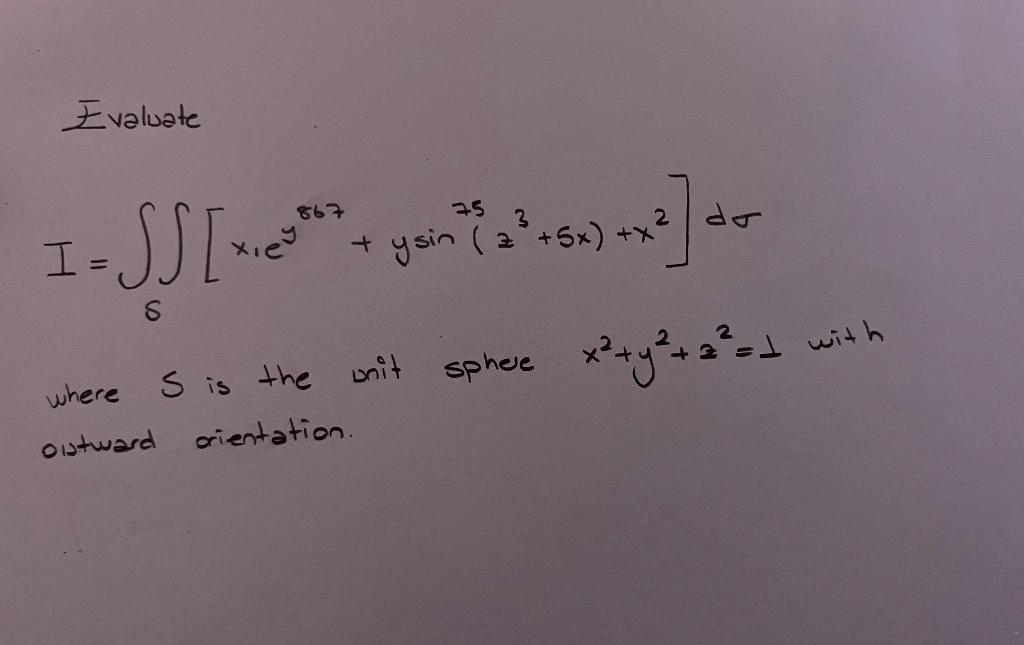 Evaluate
I = ∬_S [ x.e^{y^{867}} + y sin^{75} (z^3 + 5x) + x^2 ] dσ
where S is the unit sphere x^2 + y^2 + z^2 = 1 with
outward orientation.